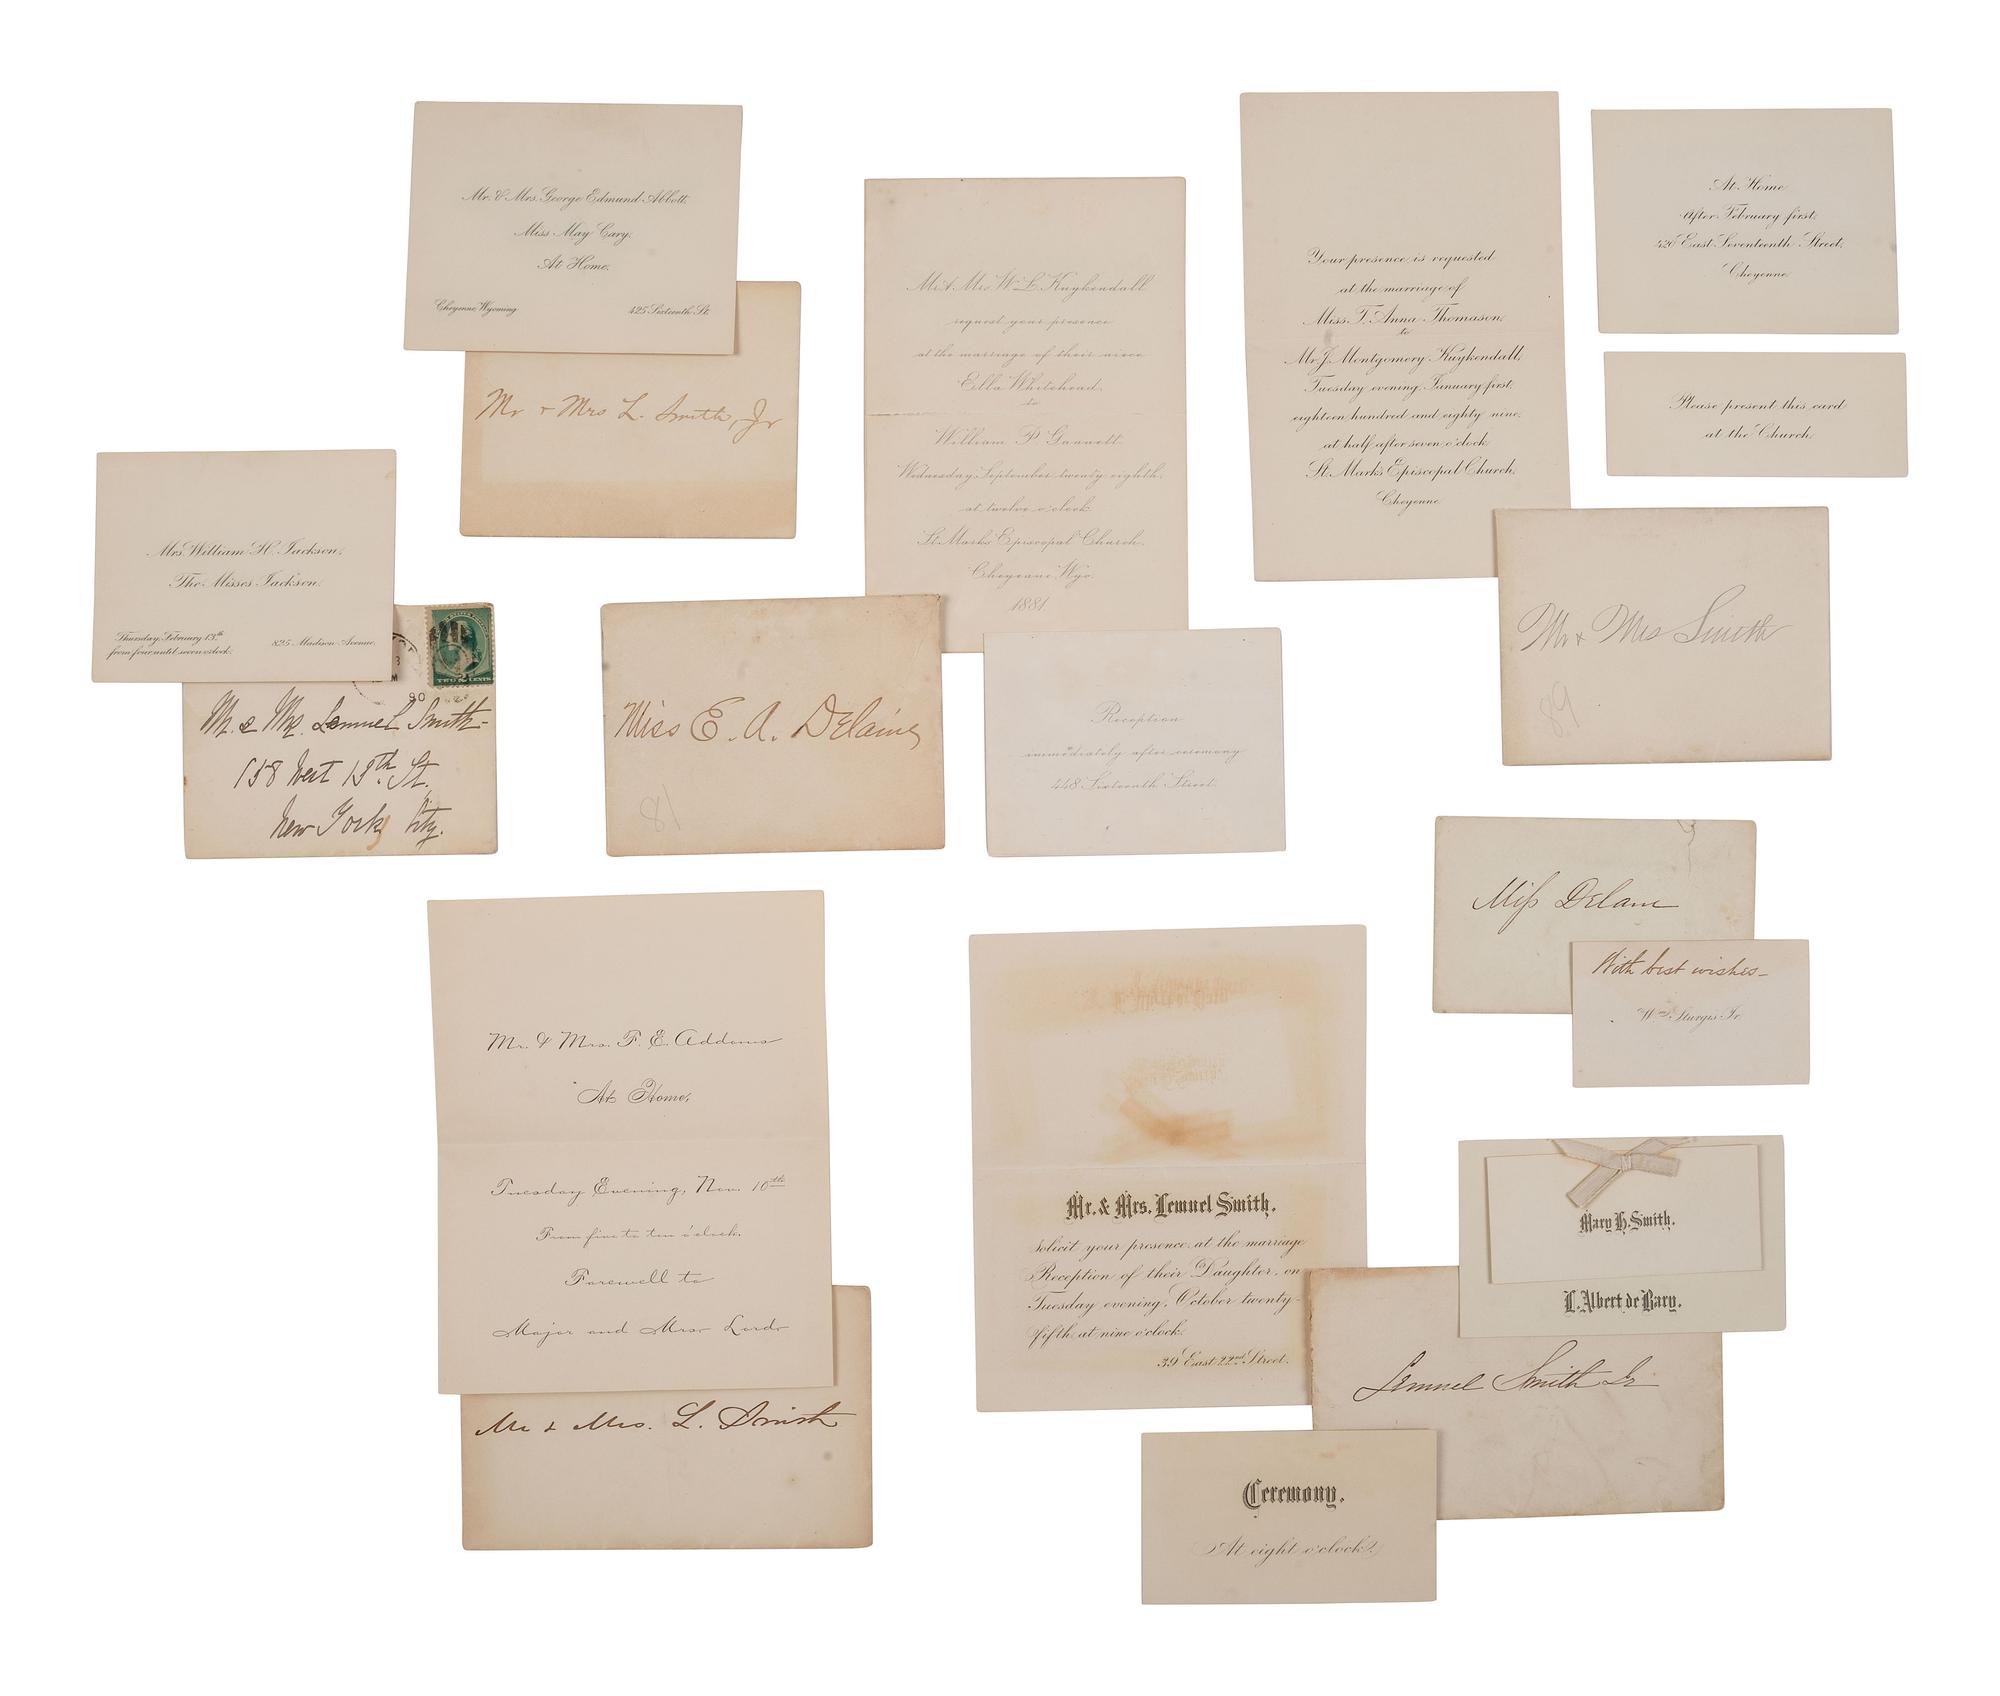 Mr. & Mrs. George Edmund Abbott,
Miss May Cary,
At Home,
Cheyenne, Wyoming
425 Sixteenth St.
Mr + Mrs L. Smith, Jr
Mrs. William H. Jackson,
The Misses Jackson,
Thursday, February 13th
from four until seven o'clock.
825 Madison Avenue.
TWO CENTS
90
Mr. & Mrs. Lemuel Smith-
158 West 13th St.
New York City.
Mr. & Mrs. W. L. Kuykendall
request your presence
at the marriage of their niece
Ella Whitehead,
to
William P. Gannett
Wednesday, September twenty eighth,
at twelve o'clock
St. Marks Episcopal Church.
Cheyenne, Wyo.
1881.
Miss E. A. Delaine
81
Reception
immediately after ceremony
448 Sixteenth Street.
Your presence is requested
at the marriage of
Miss T. Anna Thomason,
to
Mr. J. Montgomery Kuykendall,
Tuesday evening, January first,
eighteen hundred and eighty nine,
at half after seven o'clock
St. Marks Episcopal Church,
Cheyenne
At Home
After February first,
420 East Seventeenth Street,
Cheyenne
Please present this card
at the Church
Mr + Mrs Smith
89
Miss Delain
With best wishes-
Wm. Sturgis Jr.
Mr. & Mrs. F. E. Addoms
At Home,
Tuesday Evening, Nov. 10th
From five to ten o'clock.
Farewell to
Major and Mrs. Lord
Mr & Mrs. L. Smith
Mr. & Mrs. Lemuel Smith.
Solicit your presence at the marriage
Reception of their Daughter, on
Tuesday evening, October twenty-
fifth, at nine o'clock.
39 East 22nd Street.
Mary H. Smith.
L. Albert de Bary.
Lemuel Smith Jr
Ceremony.
At eight o'clock.